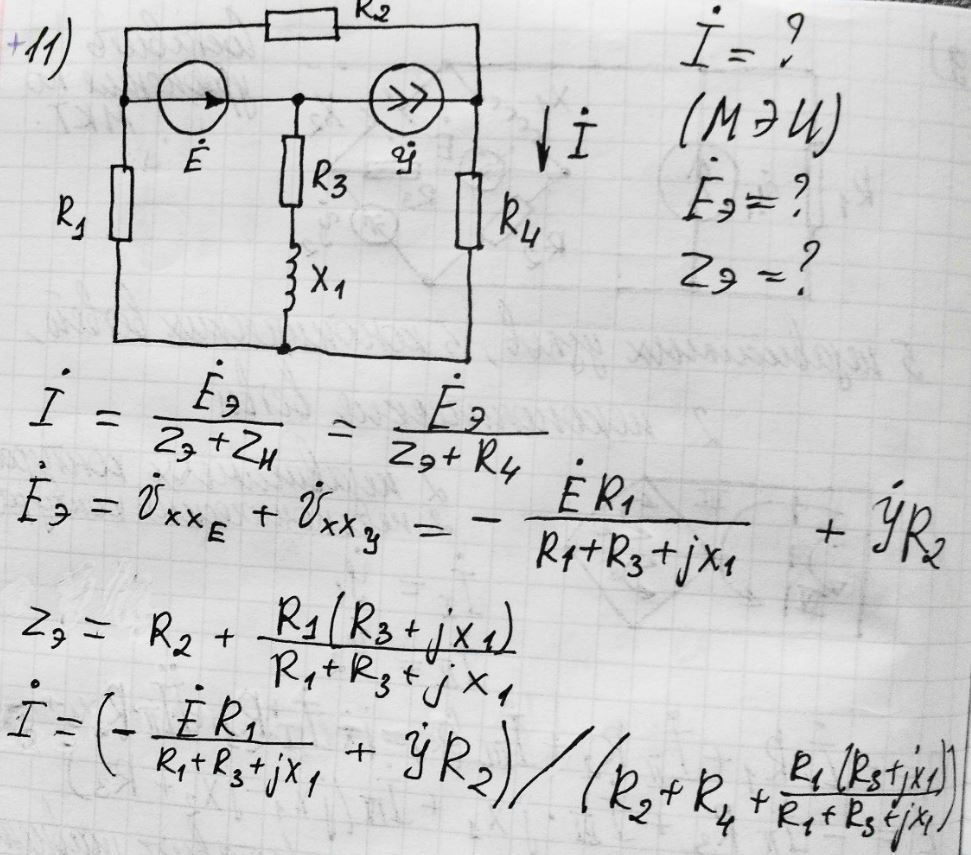 +11)
R2
İ = ?
(МЭИ)
Ė
R3
J̇
İ
Ėэ = ?
R1
R4
Zэ = ?
X1
İ = Ėэ / (Zэ + Zн) = Ėэ / (Zэ + R4)
Ėэ = U̇xxE + U̇xxJ = - ĖR1 / (R1 + R3 + jX1) + J̇R2
Zэ = R2 + R1(R3 + jX1) / (R1 + R3 + jX1)
İ = (- ĖR1 / (R1 + R3 + jX1) + J̇R2) / (R2 + R4 + R1(R3 + jX1) / (R1 + R3 + jX1))